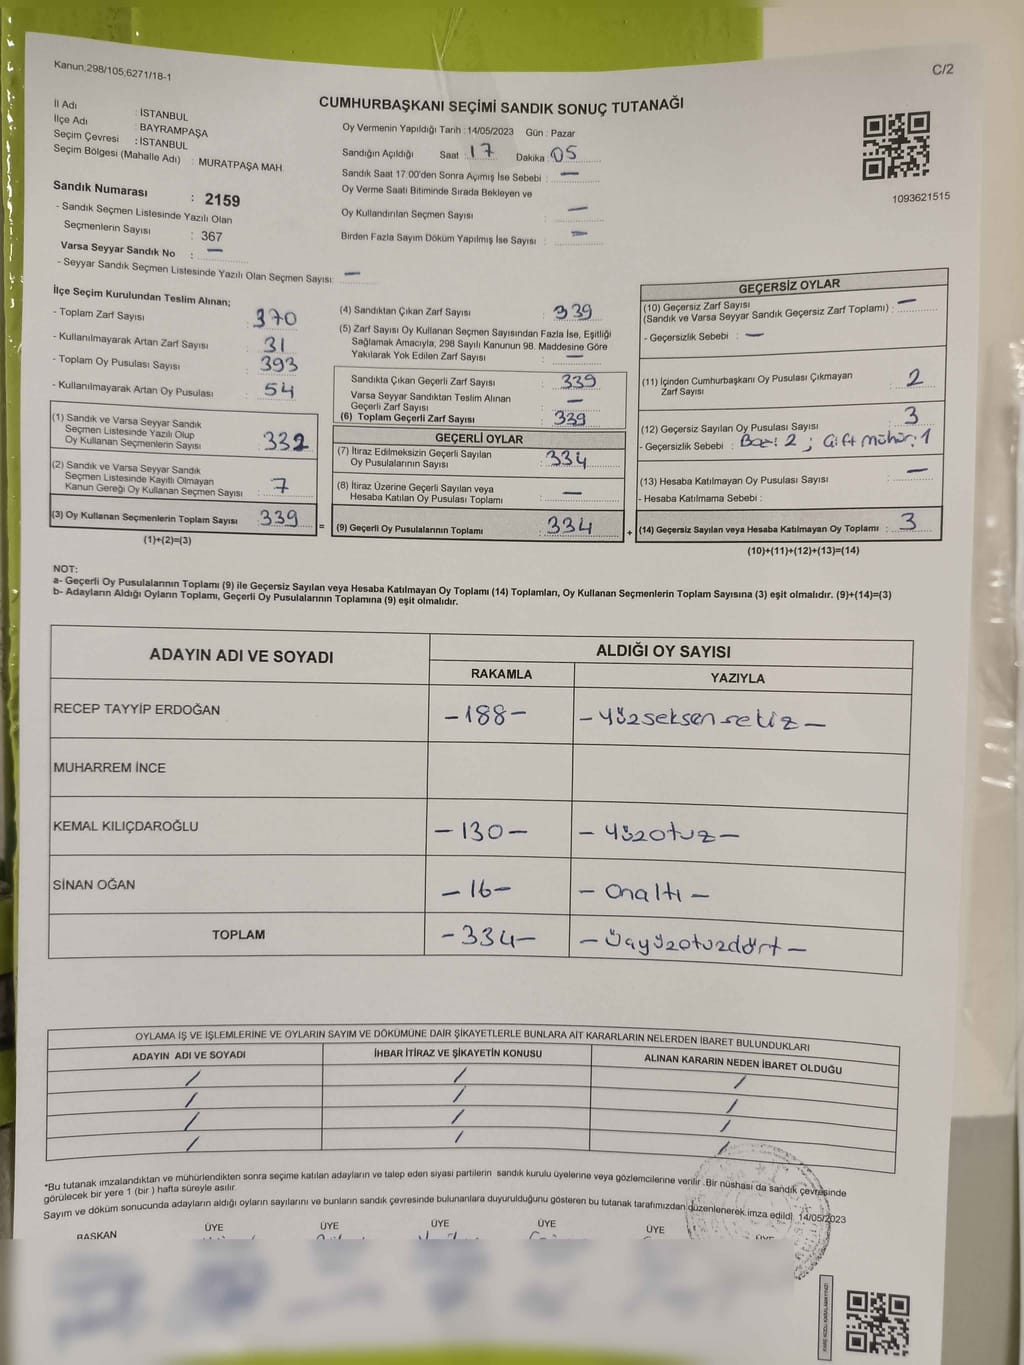 Kanun.298/105,6271/18-1
C/2
CUMHURBAŞKANI SEÇİMİ SANDIK SONUÇ TUTANAĞI
İl Adı : İSTANBUL
İlçe Adı : BAYRAMPAŞA
Seçim Çevresi : İSTANBUL
Seçim Bölgesi (Mahalle Adı) : MURATPAŞA MAH
Sandık Numarası : 2159
- Sandık Seçmen Listesinde Yazılı Olan
Seçmenlerin Sayısı : 367
Varsa Seyyar Sandık No : —
- Seyyar Sandık Seçmen Listesinde Yazılı Olan Seçmen Sayısı: —
Oy Vermenin Yapıldığı Tarih : 14/05/2023 Gün : Pazar
Sandığın Açıldığı Saat : 17 Dakika : 05
Sandık Saat 17:00'den Sonra Açımış İse Sebebi : —
Oy Verme Saati Bitiminde Sırada Bekleyen ve
Oy Kullandırılan Seçmen Sayısı : —
Birden Fazla Sayım Döküm Yapılmış İse Sayısı : —
1093621515
İlçe Seçim Kurulundan Teslim Alınan;
- Toplam Zarf Sayısı : 370
- Kullanılmayarak Artan Zarf Sayısı : 31
- Toplam Oy Pusulası Sayısı : 393
- Kullanılmayarak Artan Oy Pusulası : 54
(1) Sandık ve Varsa Seyyar Sandık
Seçmen Listesinde Yazılı Olup
Oy Kullanan Seçmenlerin Sayısı : 332
(2) Sandık ve Varsa Seyyar Sandık
Seçmen Listesinde Kayıtlı Olmayan
Kanun Gereği Oy Kullanan Seçmen Sayısı : 7
(3) Oy Kullanan Seçmenlerin Toplam Sayısı : 339
(1)+(2)=(3)
(4) Sandıktan Çıkan Zarf Sayısı : 339
(5) Zarf Sayısı Oy Kullanan Seçmen Sayısından Fazla İse, Eşitliği
Sağlamak Amacıyla, 298 Sayılı Kanunun 98. Maddesine Göre
Yakılarak Yok Edilen Zarf Sayısı : —
Sandıkta Çıkan Geçerli Zarf Sayısı : 339
Varsa Seyyar Sandıktan Teslim Alınan
Geçerli Zarf Sayısı : —
(6) Toplam Geçerli Zarf Sayısı : 339
GEÇERLİ OYLAR
(7) İtiraz Edilmeksizin Geçerli Sayılan
Oy Pusulalarının Sayısı : 334
(8) İtiraz Üzerine Geçerli Sayılan veya
Hesaba Katılan Oy Pusulası Toplamı : —
= (9) Geçerli Oy Pusulalarının Toplamı : 334
GEÇERSİZ OYLAR
(10) Geçersiz Zarf Sayısı
(Sandık ve Varsa Seyyar Sandık Geçersiz Zarf Toplamı) : —
- Geçersizlik Sebebi : —
(11) İçinden Cumhurbaşkanı Oy Pusulası Çıkmayan
Zarf Sayısı : 2
(12) Geçersiz Sayılan Oy Pusulası Sayısı : 3
- Geçersizlik Sebebi : 2 ; Çift mühür: 1
(13) Hesaba Katılmayan Oy Pusulası Sayısı : —
- Hesaba Katılmama Sebebi :
+ (14) Geçersiz Sayılan veya Hesaba Katılmayan Oy Toplamı : 3
(10)+(11)+(12)+(13)=(14)
NOT:
a- Geçerli Oy Pusulalarının Toplamı (9) ile Geçersiz Sayılan veya Hesaba Katılmayan Oy Toplamı (14) Toplamları, Oy Kullanan Seçmenlerin Toplam Sayısına (3) eşit olmalıdır. (9)+(14)=(3)
b- Adayların Aldığı Oyların Toplamı, Geçerli Oy Pusulalarının Toplamına (9) eşit olmalıdır.
ADAYIN ADI VE SOYADI ALDIĞI OY SAYISI
RAKAMLA YAZIYLA
RECEP TAYYİP ERDOĞAN -188- -Yüzseksensekiz-
MUHARREM İNCE
KEMAL KILIÇDAROĞLU -130- -Yüzotuz-
SİNAN OĞAN -16- -Onaltı-
TOPLAM -334- -Üçyüzotuzdört-
OYLAMA İŞ VE İŞLEMLERİNE VE OYLARIN SAYIM VE DÖKÜMÜNE DAİR ŞİKAYETLERLE BUNLARA AİT KARARLARIN NELERDEN İBARET BULUNDUKLARI
ADAYIN ADI VE SOYADI İHBAR İTİRAZ VE ŞİKAYETİN KONUSU ALINAN KARARIN NEDEN İBARET OLDUĞU
/ / /
/ / /
/ / /
/ / /
*Bu tutanak imzalandıktan ve mühürlendikten sonra seçime katılan adayların ve talep eden siyasi partilerin sandık kurulu üyelerine veya gözlemcilerine verilir. Bir nüshası da sandık çevresinde
görülecek bir yere 1 (bir ) hafta süreyle asılır.
Sayım ve döküm sonucunda adayların aldığı oyların sayılarını ve bunların sandık çevresinde bulunanlara duyurulduğunu gösteren bu tutanak tarafımızdan düzenlenerek imza edildi. 14/05/2023
BAŞKAN ÜYE ÜYE ÜYE ÜYE ÜYE ÜYE